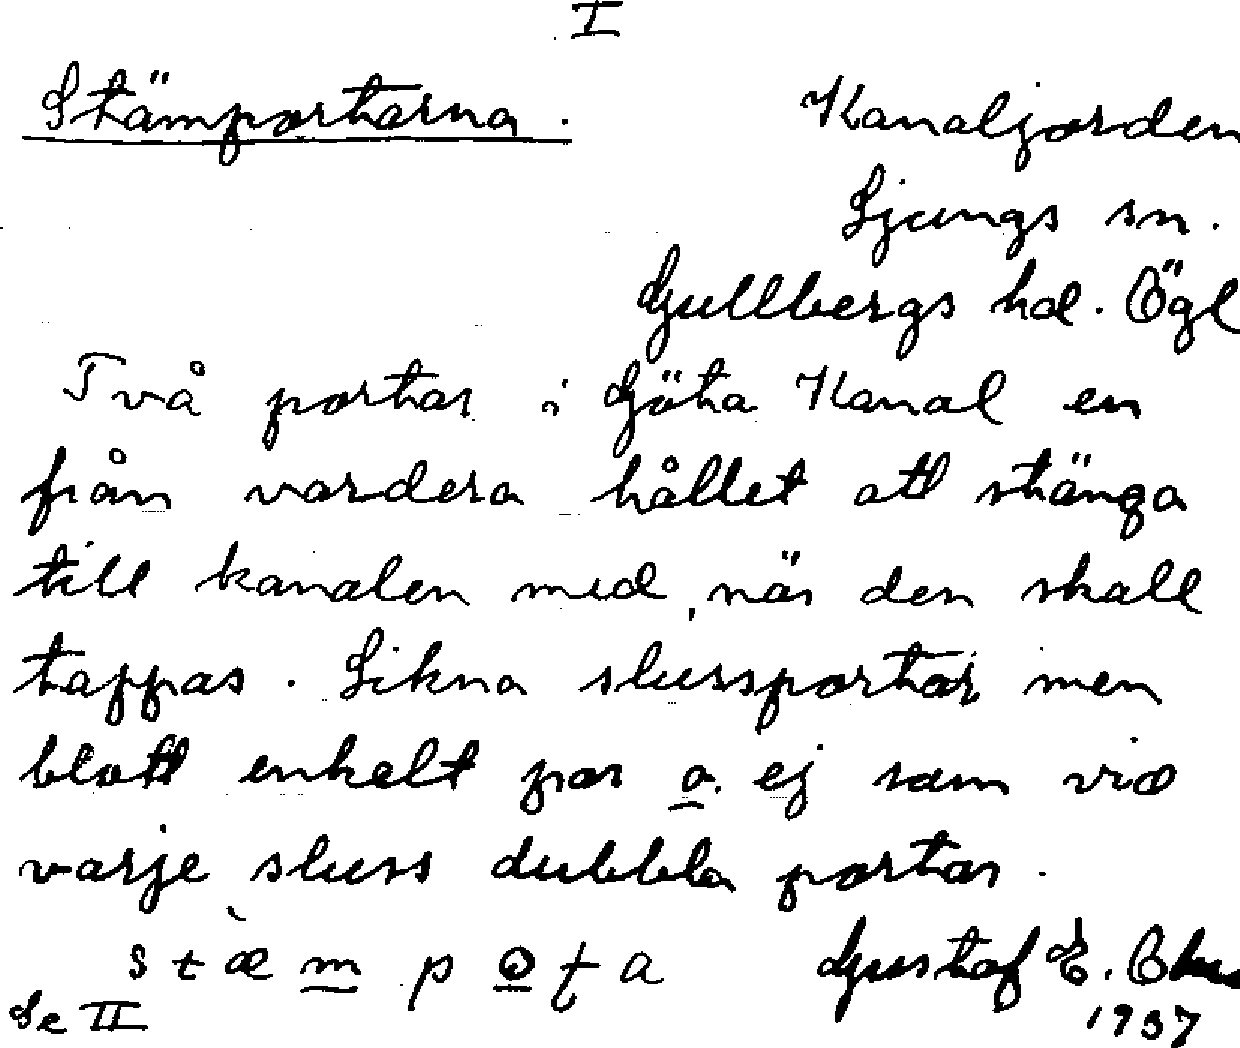 I
Stämportarna. Kanaljorden
Ljungs sn.
Gullbergs hd. Ögl
Två portar i Göta Kanal en
från vardera hållet att stänga
till kanalen med, när den skall
tappas. Likna slussportar men
blott enkelt par o. ej som vid
varje sluss dubbla portar.
Gustaf E.
Se II 1937